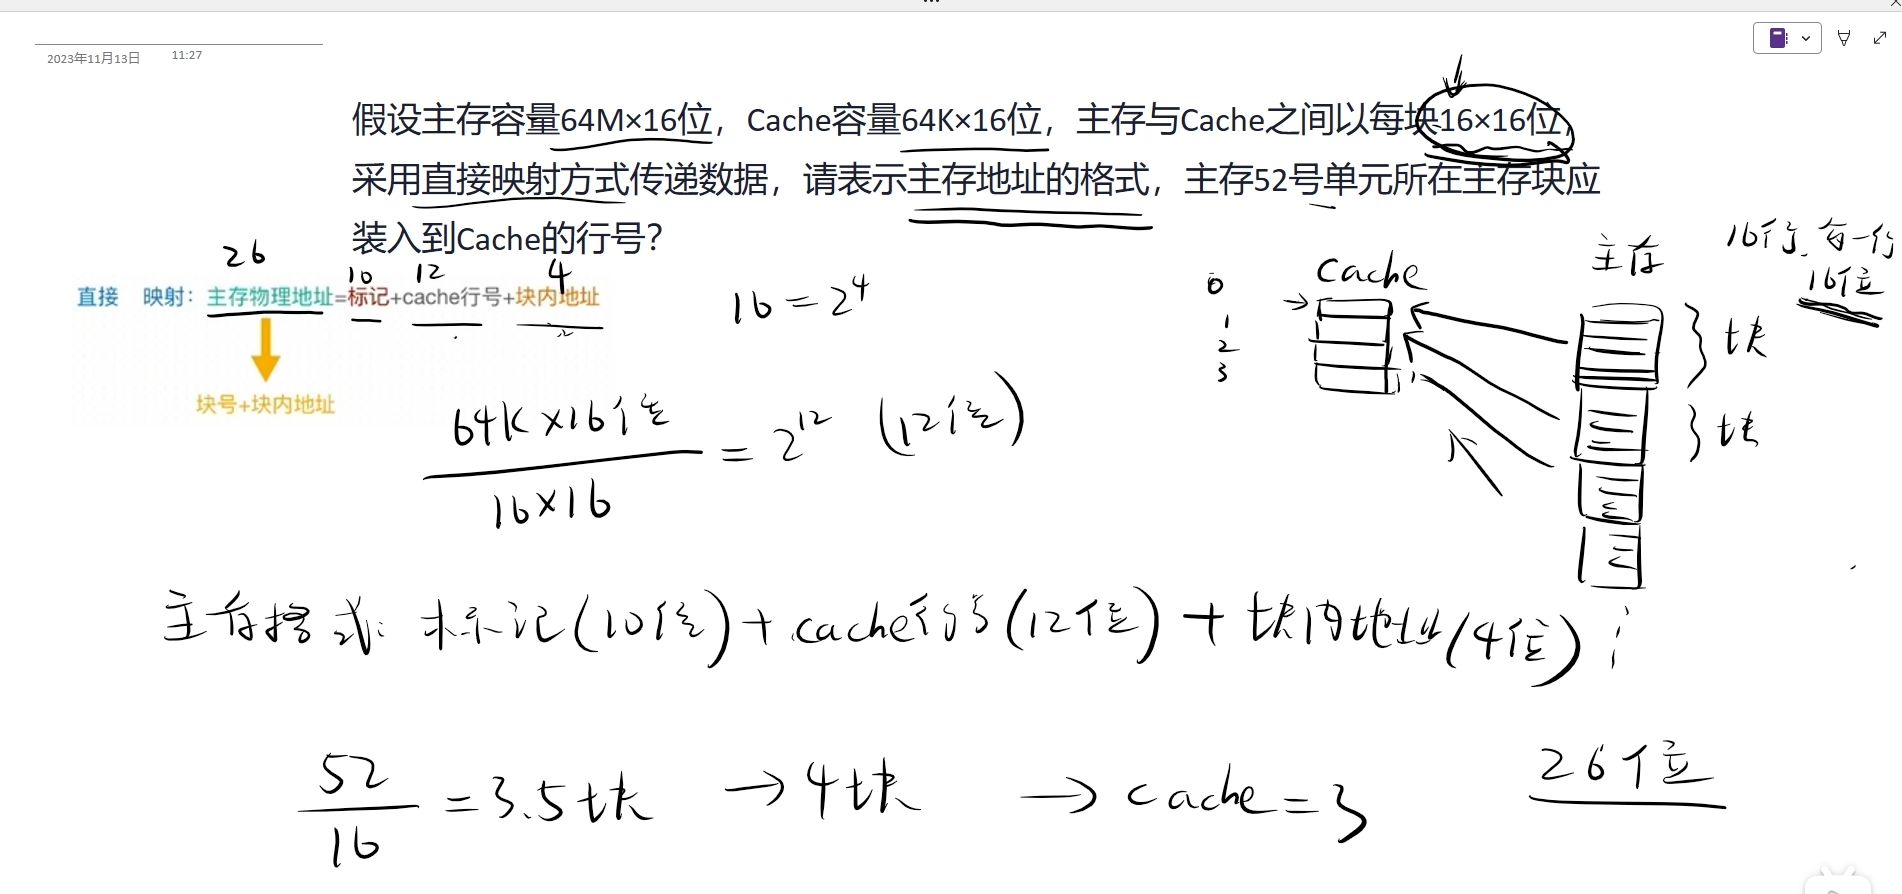 2023年11月13日 11:27
假设主存容量64M×16位，Cache容量64K×16位，主存与Cache之间以每块16×16位，
采用直接映射方式传递数据，请表示主存地址的格式，主存52号单元所在主存块应
装入到Cache的行号？
26
10 12 4
直接 映射：主存物理地址=标记+cache行号+块内地址
块号+块内地址
16=2^4
64K×16位
16×16
=2^12 (12位)
Cache
0
1
2
3
主存
16行,每一行
16位
}块
}块
主存格式: 标记(10位)+cache行号(12位)+块内地址(4位);
52
16
=3.5块 →4块 →cache=3
26位